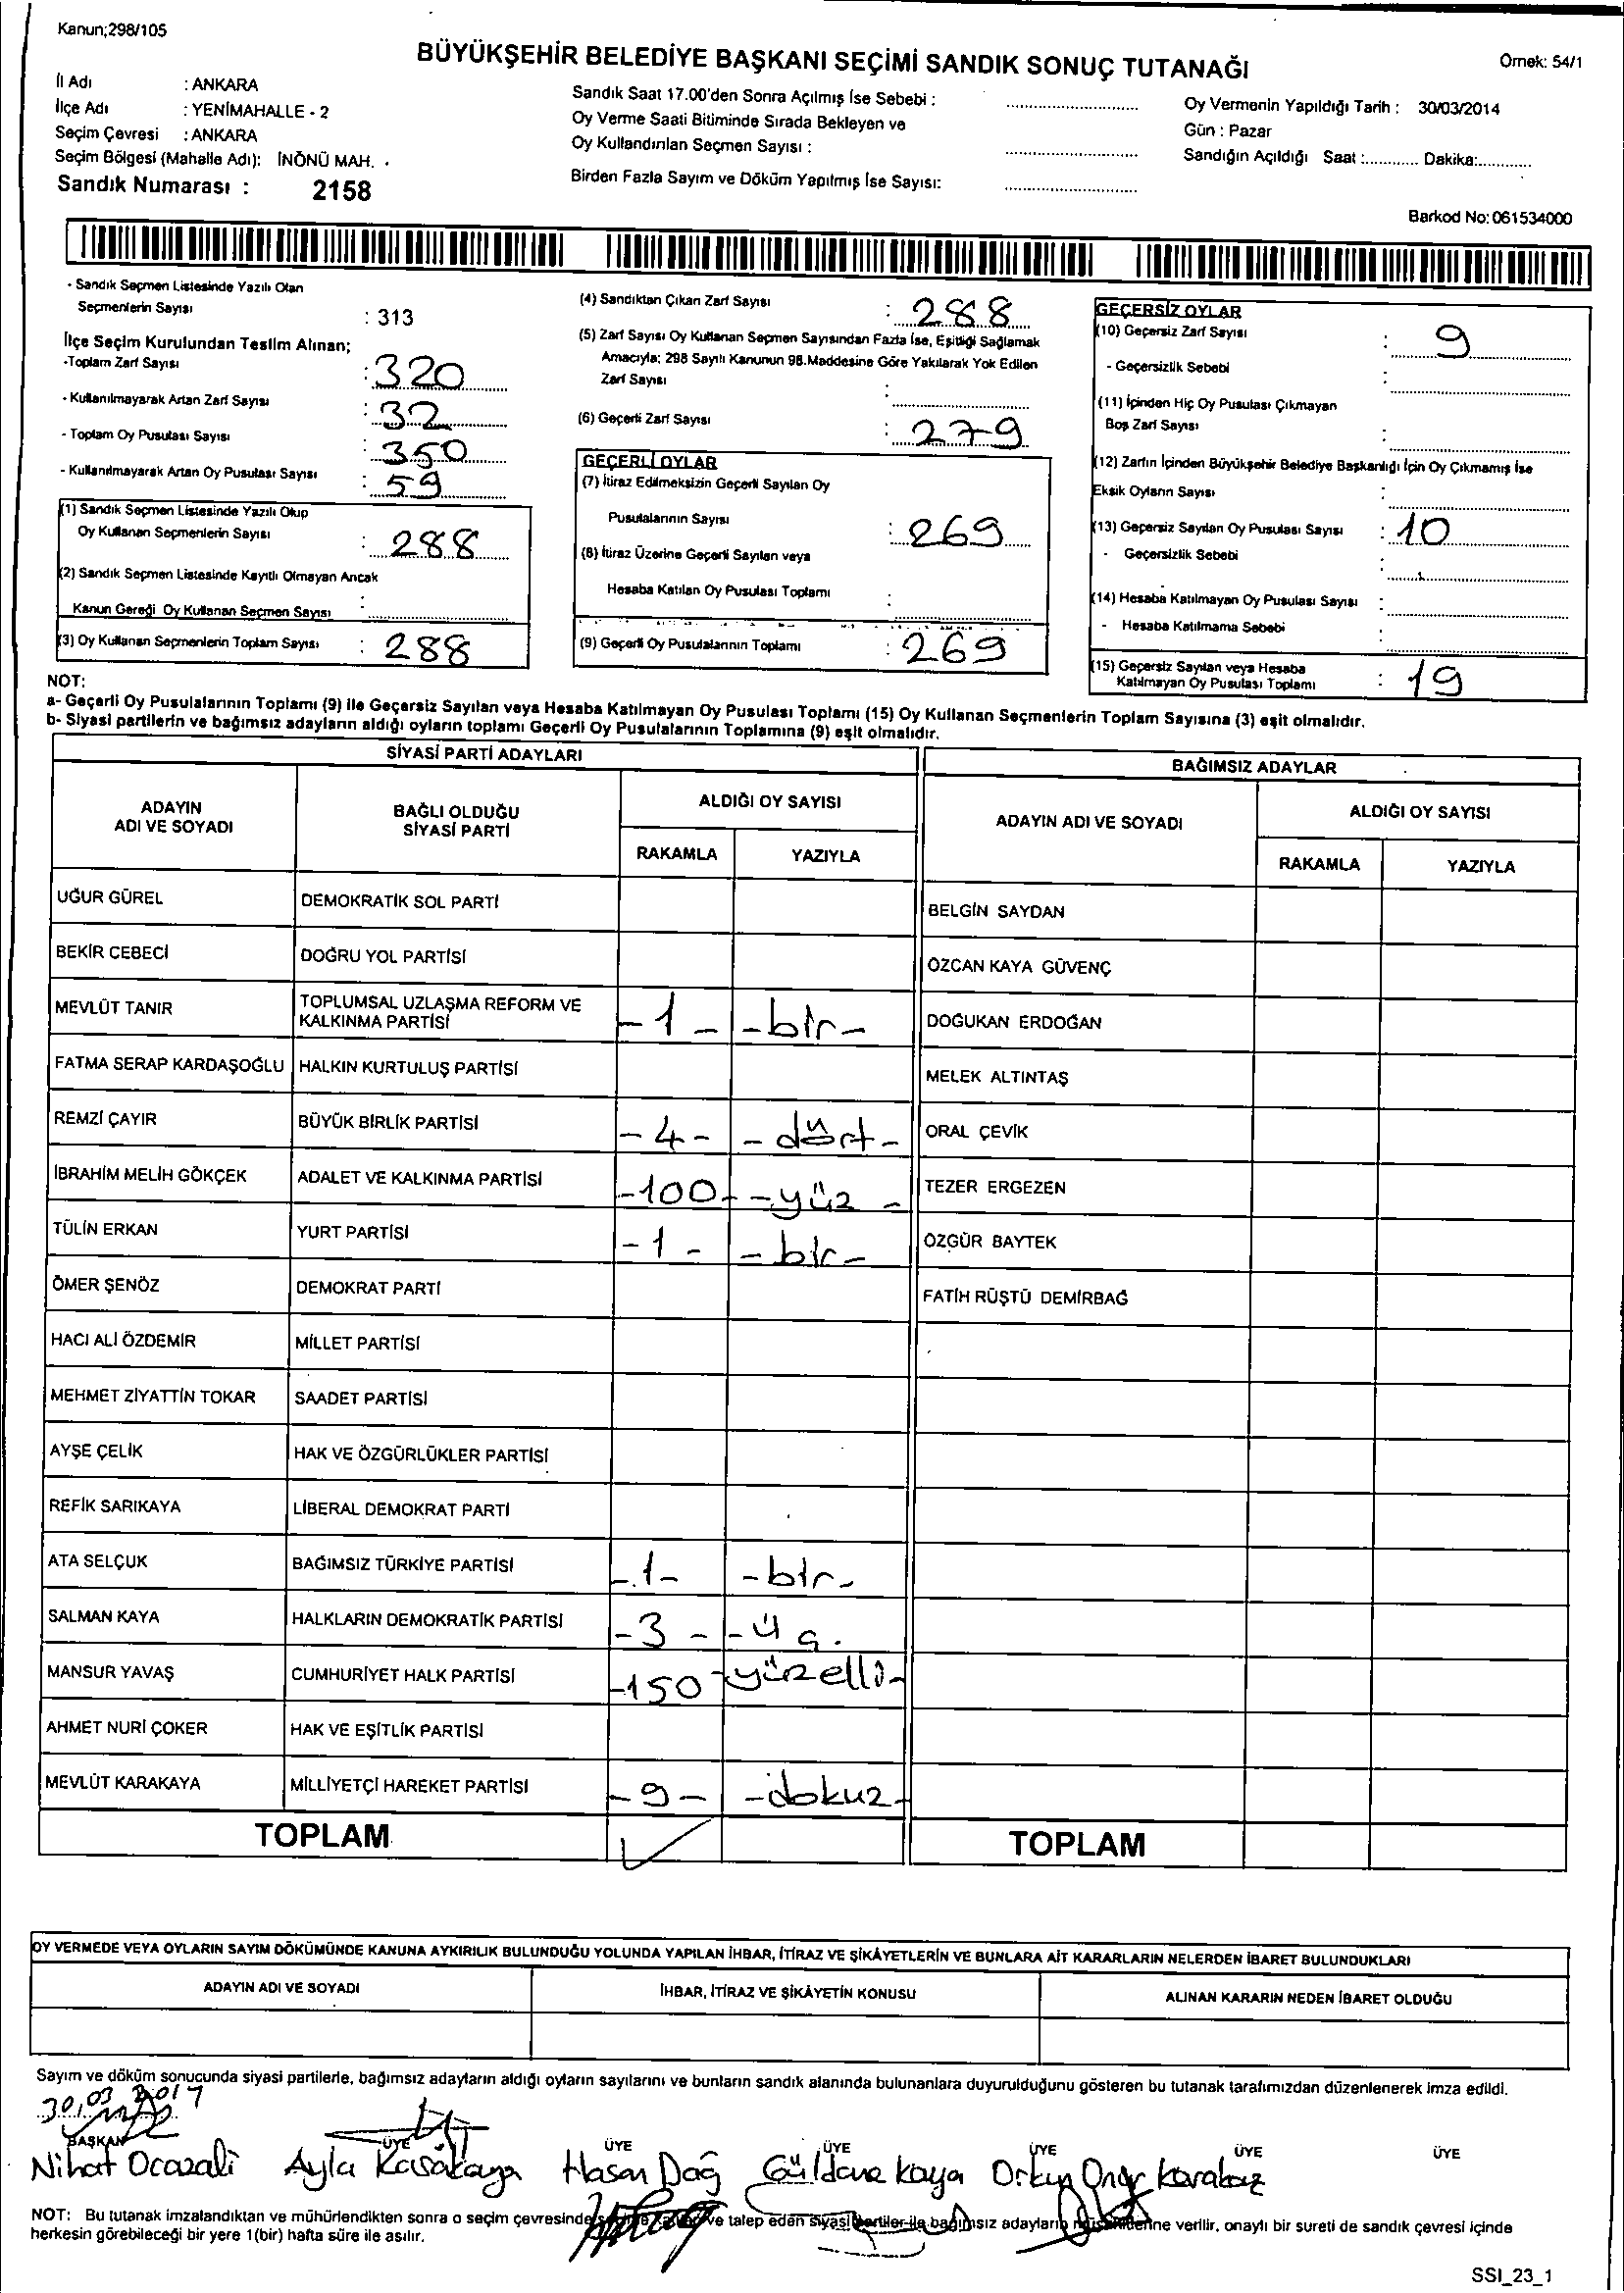 Kanun;298/105
BÜYÜKŞEHİR BELEDİYE BAŞKANI SEÇİMİ SANDIK SONUÇ TUTANAĞI
Örnek: 54/1
İl Adı : ANKARA
İlçe Adı : YENİMAHALLE - 2
Seçim Çevresi : ANKARA
Seçim Bölgesi (Mahalle Adı): İNÖNÜ MAH.
Sandık Numarası : 2158
Sandık Saat 17.00'den Sonra Açılmış İse Sebebi :
Oy Verme Saati Bitiminde Sırada Bekleyen ve
Oy Kullandırılan Seçmen Sayısı :
Birden Fazla Sayım ve Döküm Yapılmış İse Sayısı:
Oy Vermenin Yapıldığı Tarih : 30/03/2014
Gün : Pazar
Sandığın Açıldığı Saat :............ Dakika:............
Barkod No: 061534000
- Sandık Seçmen Listesinde Yazılı Olan
Seçmenlerin Sayısı : 313
İlçe Seçim Kurulundan Teslim Alınan;
-Toplam Zarf Sayısı : 320
- Kullanılmayarak Artan Zarf Sayısı : 32
- Toplam Oy Pusulası Sayısı : 350
- Kullanılmayarak Artan Oy Pusulası Sayısı : 59
(1) Sandık Seçmen Listesinde Yazılı Olup
Oy Kullanan Seçmenlerin Sayısı : 288
(2) Sandık Seçmen Listesinde Kayıtlı Olmayan Ancak
Kanun Gereği Oy Kullanan Seçmen Sayısı :
(3) Oy Kullanan Seçmenlerin Toplam Sayısı : 288
(4) Sandıktan Çıkan Zarf Sayısı : 288
(5) Zarf Sayısı Oy Kullanan Seçmen Sayısından Fazla İse, Eşitliği Sağlamak
Amacıyla; 298 Sayılı Kanunun 98.Maddesine Göre Yakılarak Yok Edilen
Zarf Sayısı :
(6) Geçerli Zarf Sayısı : 279
GEÇERLİ OYLAR
(7) İtiraz Edilmeksizin Geçerli Sayılan Oy
Pusulalarının Sayısı : 269
(8) İtiraz Üzerine Geçerli Sayılan veya
Hesaba Katılan Oy Pusulası Toplamı :
(9) Geçerli Oy Pusulalarının Toplamı : 269
GEÇERSİZ OYLAR
(10) Geçersiz Zarf Sayısı : 9
- Geçersizlik Sebebi :
(11) İçinden Hiç Oy Pusulası Çıkmayan
Boş Zarf Sayısı :
(12) Zarfın İçinden Büyükşehir Belediye Başkanlığı İçin Oy Çıkmamış İse
Eksik Oyların Sayısı :
(13) Geçersiz Sayılan Oy Pusulası Sayısı : 10
- Geçersizlik Sebebi :
(14) Hesaba Katılmayan Oy Pusulası Sayısı :
- Hesaba Katılmama Sebebi :
(15) Geçersiz Sayılan veya Hesaba
Katılmayan Oy Pusulası Toplamı : 19
NOT:
a- Geçerli Oy Pusulalarının Toplamı (9) ile Geçersiz Sayılan veya Hesaba Katılmayan Oy Pusulası Toplamı (15) Oy Kullanan Seçmenlerin Toplam Sayısına (3) eşit olmalıdır.
b- Siyasi partilerin ve bağımsız adayların aldığı oyların toplamı Geçerli Oy Pusulalarının Toplamına (9) eşit olmalıdır.
SİYASİ PARTİ ADAYLARI
ADAYIN ADI VE SOYADI
BAĞLI OLDUĞU SİYASİ PARTİ
ALDIĞI OY SAYISI
RAKAMLA YAZIYLA
UĞUR GÜREL DEMOKRATİK SOL PARTİ
BEKİR CEBECİ DOĞRU YOL PARTİSİ
MEVLÜT TANIR TOPLUMSAL UZLAŞMA REFORM VE KALKINMA PARTİSİ -1- -bir-
FATMA SERAP KARDAŞOĞLU HALKIN KURTULUŞ PARTİSİ
REMZİ ÇAYIR BÜYÜK BİRLİK PARTİSİ -4- -dört-
İBRAHİM MELİH GÖKÇEK ADALET VE KALKINMA PARTİSİ -100- -yüz-
TÜLİN ERKAN YURT PARTİSİ -1- -bir-
ÖMER ŞENÖZ DEMOKRAT PARTİ
HACI ALİ ÖZDEMİR MİLLET PARTİSİ
MEHMET ZİYATTİN TOKAR SAADET PARTİSİ
AYŞE ÇELİK HAK VE ÖZGÜRLÜKLER PARTİSİ
REFİK SARIKAYA LİBERAL DEMOKRAT PARTİ
ATA SELÇUK BAĞIMSIZ TÜRKİYE PARTİSİ -1- -bir-
SALMAN KAYA HALKLARIN DEMOKRATİK PARTİSİ -3- -üç.
MANSUR YAVAŞ CUMHURİYET HALK PARTİSİ -150 -yüzelli-
AHMET NURİ ÇOKER HAK VE EŞİTLİK PARTİSİ
MEVLÜT KARAKAYA MİLLİYETÇİ HAREKET PARTİSİ -9- -dokuz-
TOPLAM
BAĞIMSIZ ADAYLAR
ADAYIN ADI VE SOYADI
ALDIĞI OY SAYISI
RAKAMLA YAZIYLA
BELGİN SAYDAN
ÖZCAN KAYA GÜVENÇ
DOĞUKAN ERDOĞAN
MELEK ALTINTAŞ
ORAL ÇEVİK
TEZER ERGEZEN
ÖZGÜR BAYTEK
FATİH RÜŞTÜ DEMİRBAĞ
TOPLAM
OY VERMEDE VEYA OYLARIN SAYIM DÖKÜMÜNDE KANUNA AYKIRILIK BULUNDUĞU YOLUNDA YAPILAN İHBAR, İTİRAZ VE ŞİKÂYETLERİN VE BUNLARA AİT KARARLARIN NELERDEN İBARET BULUNDUKLARI
ADAYIN ADI VE SOYADI İHBAR, İTİRAZ VE ŞİKÂYETİN KONUSU ALINAN KARARIN NEDEN İBARET OLDUĞU
Sayım ve döküm sonucunda siyasi partilerle, bağımsız adayların aldığı oyların sayılarını ve bunların sandık alanında bulunanlara duyurulduğunu gösteren bu tutanak tarafımızdan düzenlenerek imza edildi.
30,03,2017
BAŞKAN ÜYE ÜYE ÜYE ÜYE ÜYE ÜYE
Nihat Ayla Hasan Dağ Kaya
NOT: Bu tutanak imzalandıktan ve mühürlendikten sonra o seçim çevresinde ve talep eden siyasi partiler ile bağımsız adayların verilir, onaylı bir sureti de sandık çevresi içinde
herkesin görebileceği bir yere 1(bir) hafta süre ile asılır.
SSI_23_1